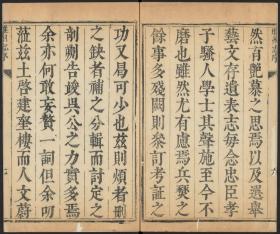 然有艷慕之思焉以及選舉
藝文存遺表志毎念忠臣孝
子騷人學士其聲施至今不
磨也雖然尤有慮焉兵燹之
餘事多殘闕則叅訂考証之
功又曷可少也玆則煩者刪
之缺者補之分輯而討定之
剞劂告竣吳公之力實多焉
余亦何敢妄贅一詞但余叨
蒞玆土啓建奎樓而人文蔚
六